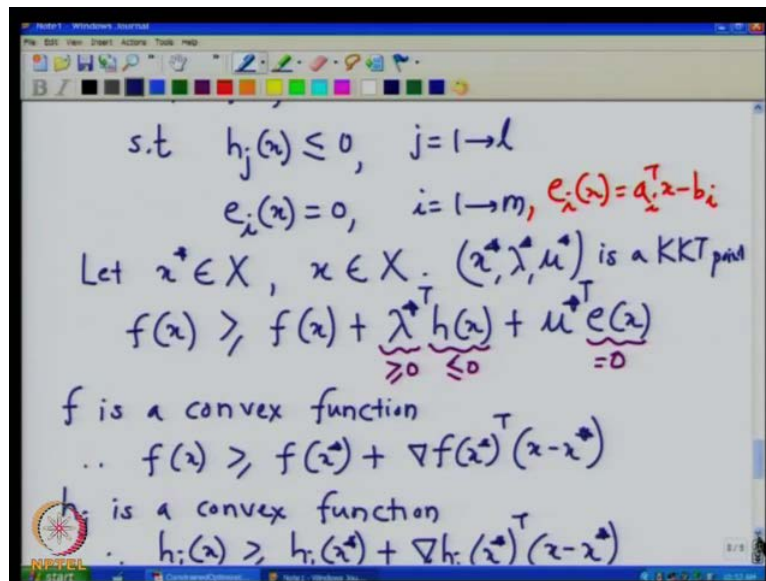 Note1 - Windows Journal
File Edit View Insert Actions Tools Help
B I
s.t h_j(x) ≤ 0, j = 1→l
e_i(x) = 0, i = 1→m, e_i(x) = a_i^T x - b_i
Let x* ∈ X, x ∈ X. (x*, λ*, μ*) is a KKT point
f(x) ≥ f(x) + λ*^T h(x) + μ*^T e(x)
≥0 ≤0 =0
f is a convex function
∴ f(x) ≥ f(x*) + ∇f(x*)^T (x-x*)
h_j is a convex function
∴ h_j(x) ≥ h_j(x*) + ∇h_j(x*)^T (x-x*)
NPTEL
start
Note1 - Windows Jou...